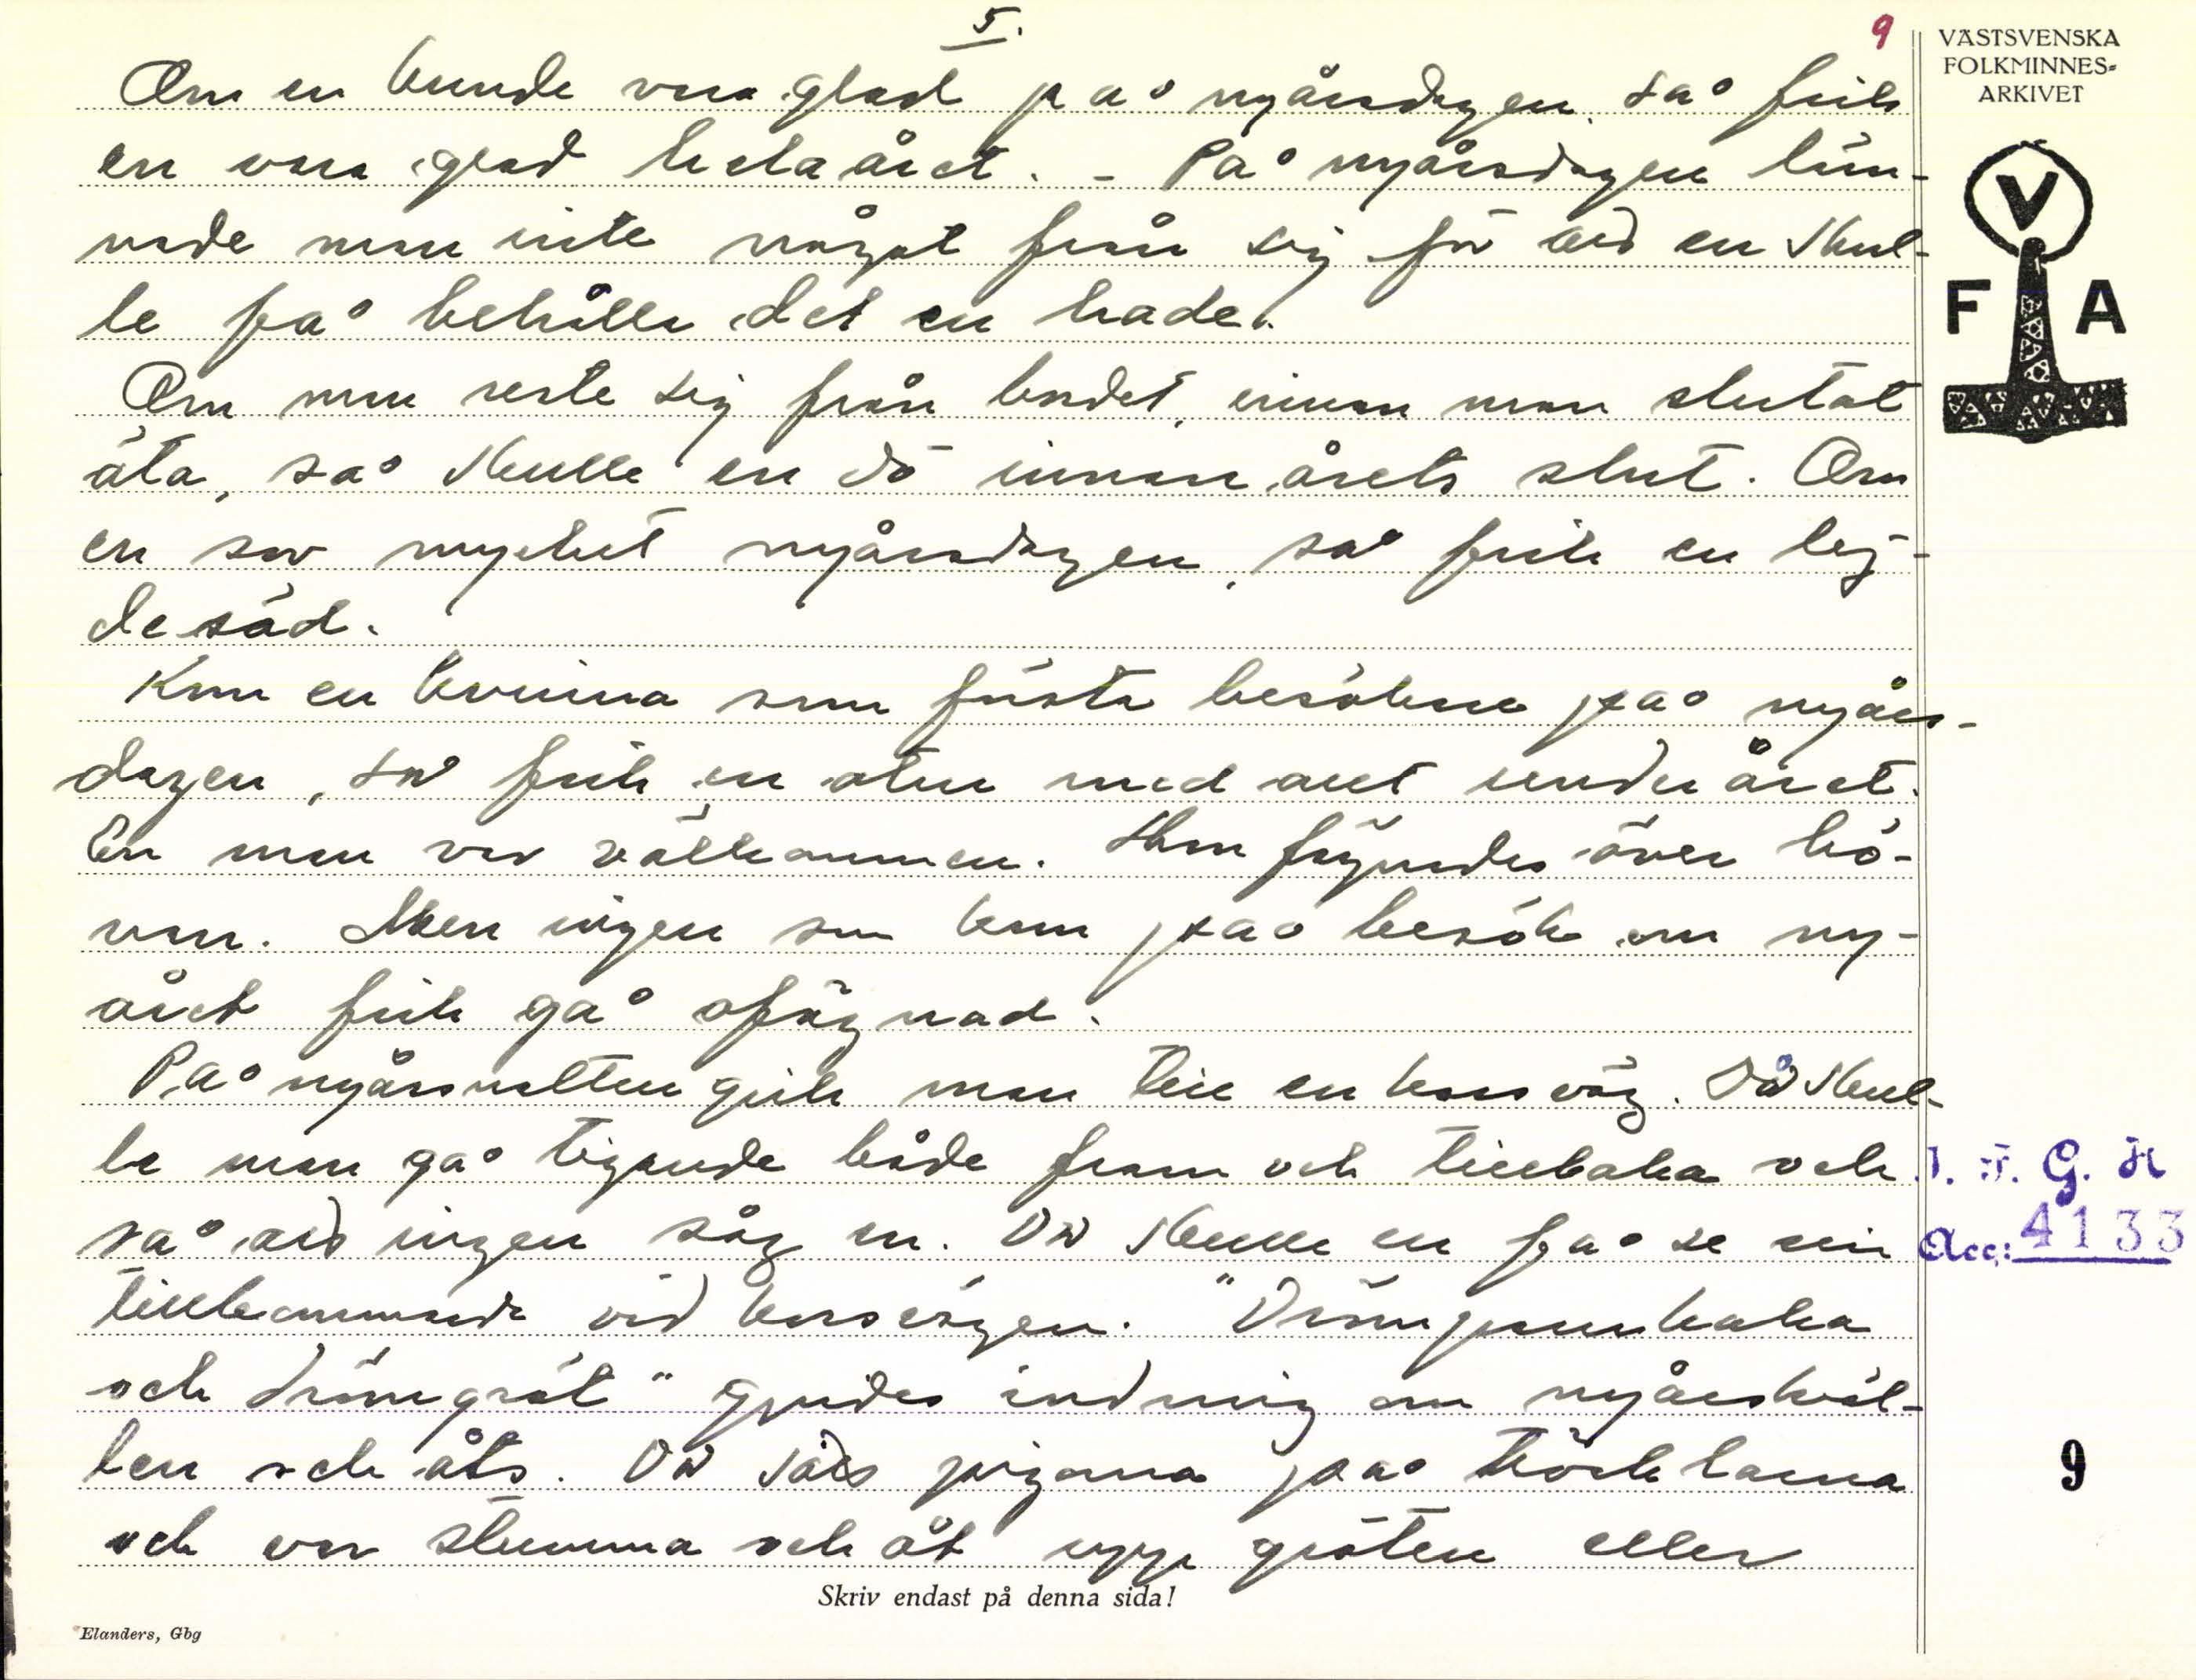 5.
9
VÄSTSVENSKA
FOLKMINNES-
ARKIVET
V
F A
Om en kunde vara glad på nyårsdagen, så fick
en vara glad hela året. - På nyårsdagen läm-
nade man inte något från sig för att en skul-
le få behålla det en hade.
Om man reste sig från bordet, innan man slutat
äta, så skulle en dö innan årets slut. Om
en sov mycket nyårsdagen, så fick en leg-
de säd.
Kom en kvinna som första besökare på nyårs-
dagen, så fick en otur med allt under året.
En man var välkommen. Han fägnades över hö-
van. Men ingen som kom på besök om ny-
året fick gå ofägnad.
På nyårsnatten gick man till en korsväg. Då skul-
le man gå tigande både fram och tillbaka och
så att ingen såg en. Då skulle en få se sin
tillkommande vid korsvägen. "Drömpannkaka
och drömgröt" gjordes i ordning om nyårskväl-
len och åts. Då satt pigorna på trösklarna
och var stumma och åt upp gröten eller
I. F. G. H
Acc: 4133
9
Skriv endast på denna sida!
Elanders, Gbg